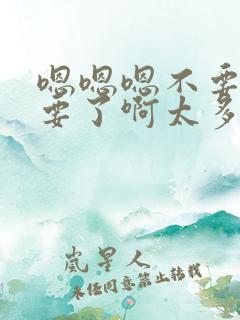 嗯嗯嗯不要
要了啊太多
岚星人
未经同意禁止转载